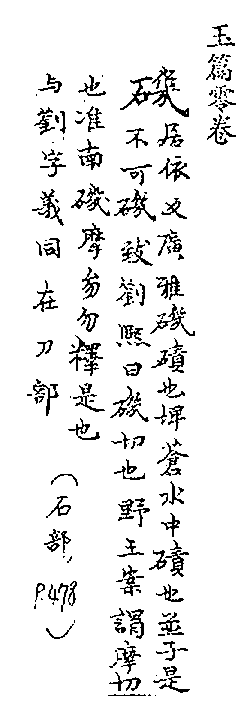 玉篇零卷
磯居依反廣雅磯磧也埤蒼水中磧也並子是
不可磯致劉熙曰磯切也野王案謂摩切
也淮南磯摩勿釋是也
与剴字義同在刀部
（石部，P.478）